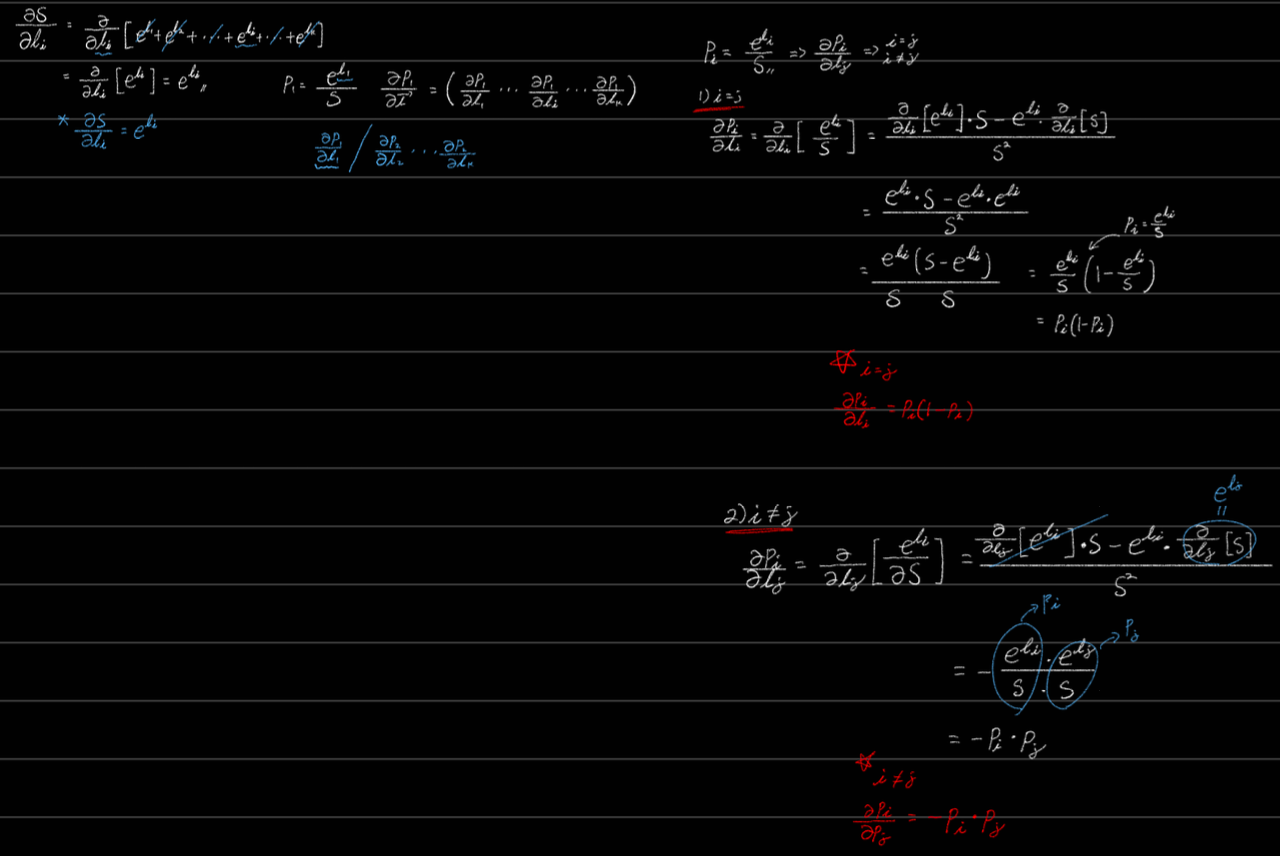 ∂S/∂l_i = ∂/∂l_i [e^{l_1} + e^{l_2} + ... + e^{l_i} + ... + e^{l_k}]
= ∂/∂l_i [e^{l_i}] = e^{l_i} 〃
* ∂S/∂l_i = e^{l_i}
P_1 = e^{l_1}/S ∂P_1/∂l⃗ = (∂P_1/∂l_1 ... ∂P_1/∂l_i ... ∂P_1/∂l_k)
∂P_1/∂l_1 / ∂P_2/∂l_2 ... ∂P_2/∂l_k
P_i = e^{l_i}/S 〃 => ∂P_i/∂l_j => i=j
i≠j
1) i=j
∂P_i/∂l_i = ∂/∂l_i [e^{l_i}/S] = (∂/∂l_i [e^{l_i}]·S - e^{l_i}·∂/∂l_i [S])/S²
= (e^{l_i}·S - e^{l_i}·e^{l_i})/S²
P_i = e^{l_i}/S
= e^{l_i}(S - e^{l_i})/S S = e^{l_i}/S (1 - e^{l_i}/S)
= P_i(1-P_i)
☆ i=j
∂P_i/∂l_i = P_i(1-P_i)
e^{l_j}
=
2) i≠j
∂P_i/∂l_j = ∂/∂l_j [e^{l_i}/∂S] = (∂/∂l_j [e^{l_i}]·S - e^{l_i}·∂/∂l_j [S])/S²
P_i
P_j
= - e^{l_i}·e^{l_j}/S·S
= -P_i·P_j
☆ i≠j
∂P_i/∂P_j = -P_i·P_j